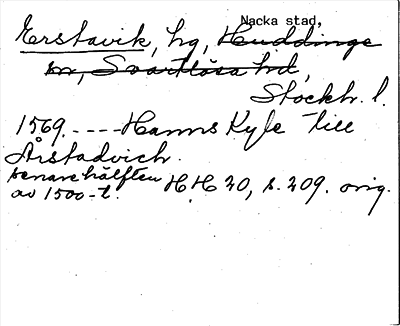 Nacka stad,
Erstavik, hg, Huddinge
sn, Svartlösa hd,
Stockh. l.
1569. ---- Hanns Kyle till
Årstadvich.
senare hälften
av 1500-t. HH 20, s. 209. orig.